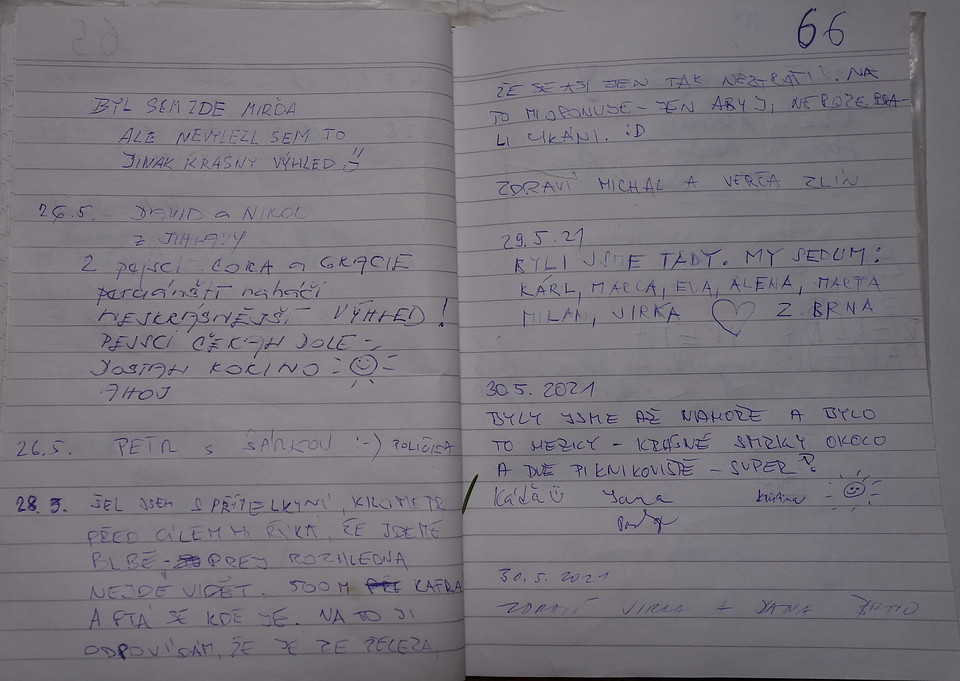 BYL SEM ZDE MIRĎA
ALE NEVYLEZL SEM TO
JINAK KRÁSNY VÝHLED
26.5. DAVID a NIKOL
z JIHLAVY
2 pejsci CORA a GRACIE
naháči
NEJKRÁSNĚJŠÍ VÝHLED!
PEJSCI ČEKAJ DOLE -
DOSTAN KOKINO
AHOJ
26.5. PETR s ŠÁRKOU :-) POLIČKA
28.5. ŠEL JSEM S PŘÍTELKYNÍ, KILOMETR
PŘED CÍLEM MI ŘÍKÁ, ŽE JDEME
BLBĚ - PREJ ROZHLEDNA
NEJDE VIDĚT. 500M KAFRA
A PTÁ SE KDE JE. NA TO JI
ODPOVÍDÁM, ŽE JE ZE ŽELEZA,
66
ŽE SE ASI JEN TAK NEZTRATÍ. NA
TO MI OPONUJE - JEN ABY JI NEROZEBRA-
LI CIKÁNI. :D
ZDRAVÍ MICHAL A VERČA ZLÍN
29.5.21
BYLI JSME TADY. MY SEDUM:
KAREL, MARCA, EVA, ALENA, MARTA
MILAN, JIRKA Z BRNA
30.5.2021
BYLY JSME AŽ NAHOŘE A BYLO
TO HEZKY - KRÁSNÉ SMRKY OKOLO
A DVĚ PIKNIKOVIŠTĚ - SUPER!
Káťa Jana Kristina
30.5.2021
ZDRAVÍ JIRKA + JANA BRNO